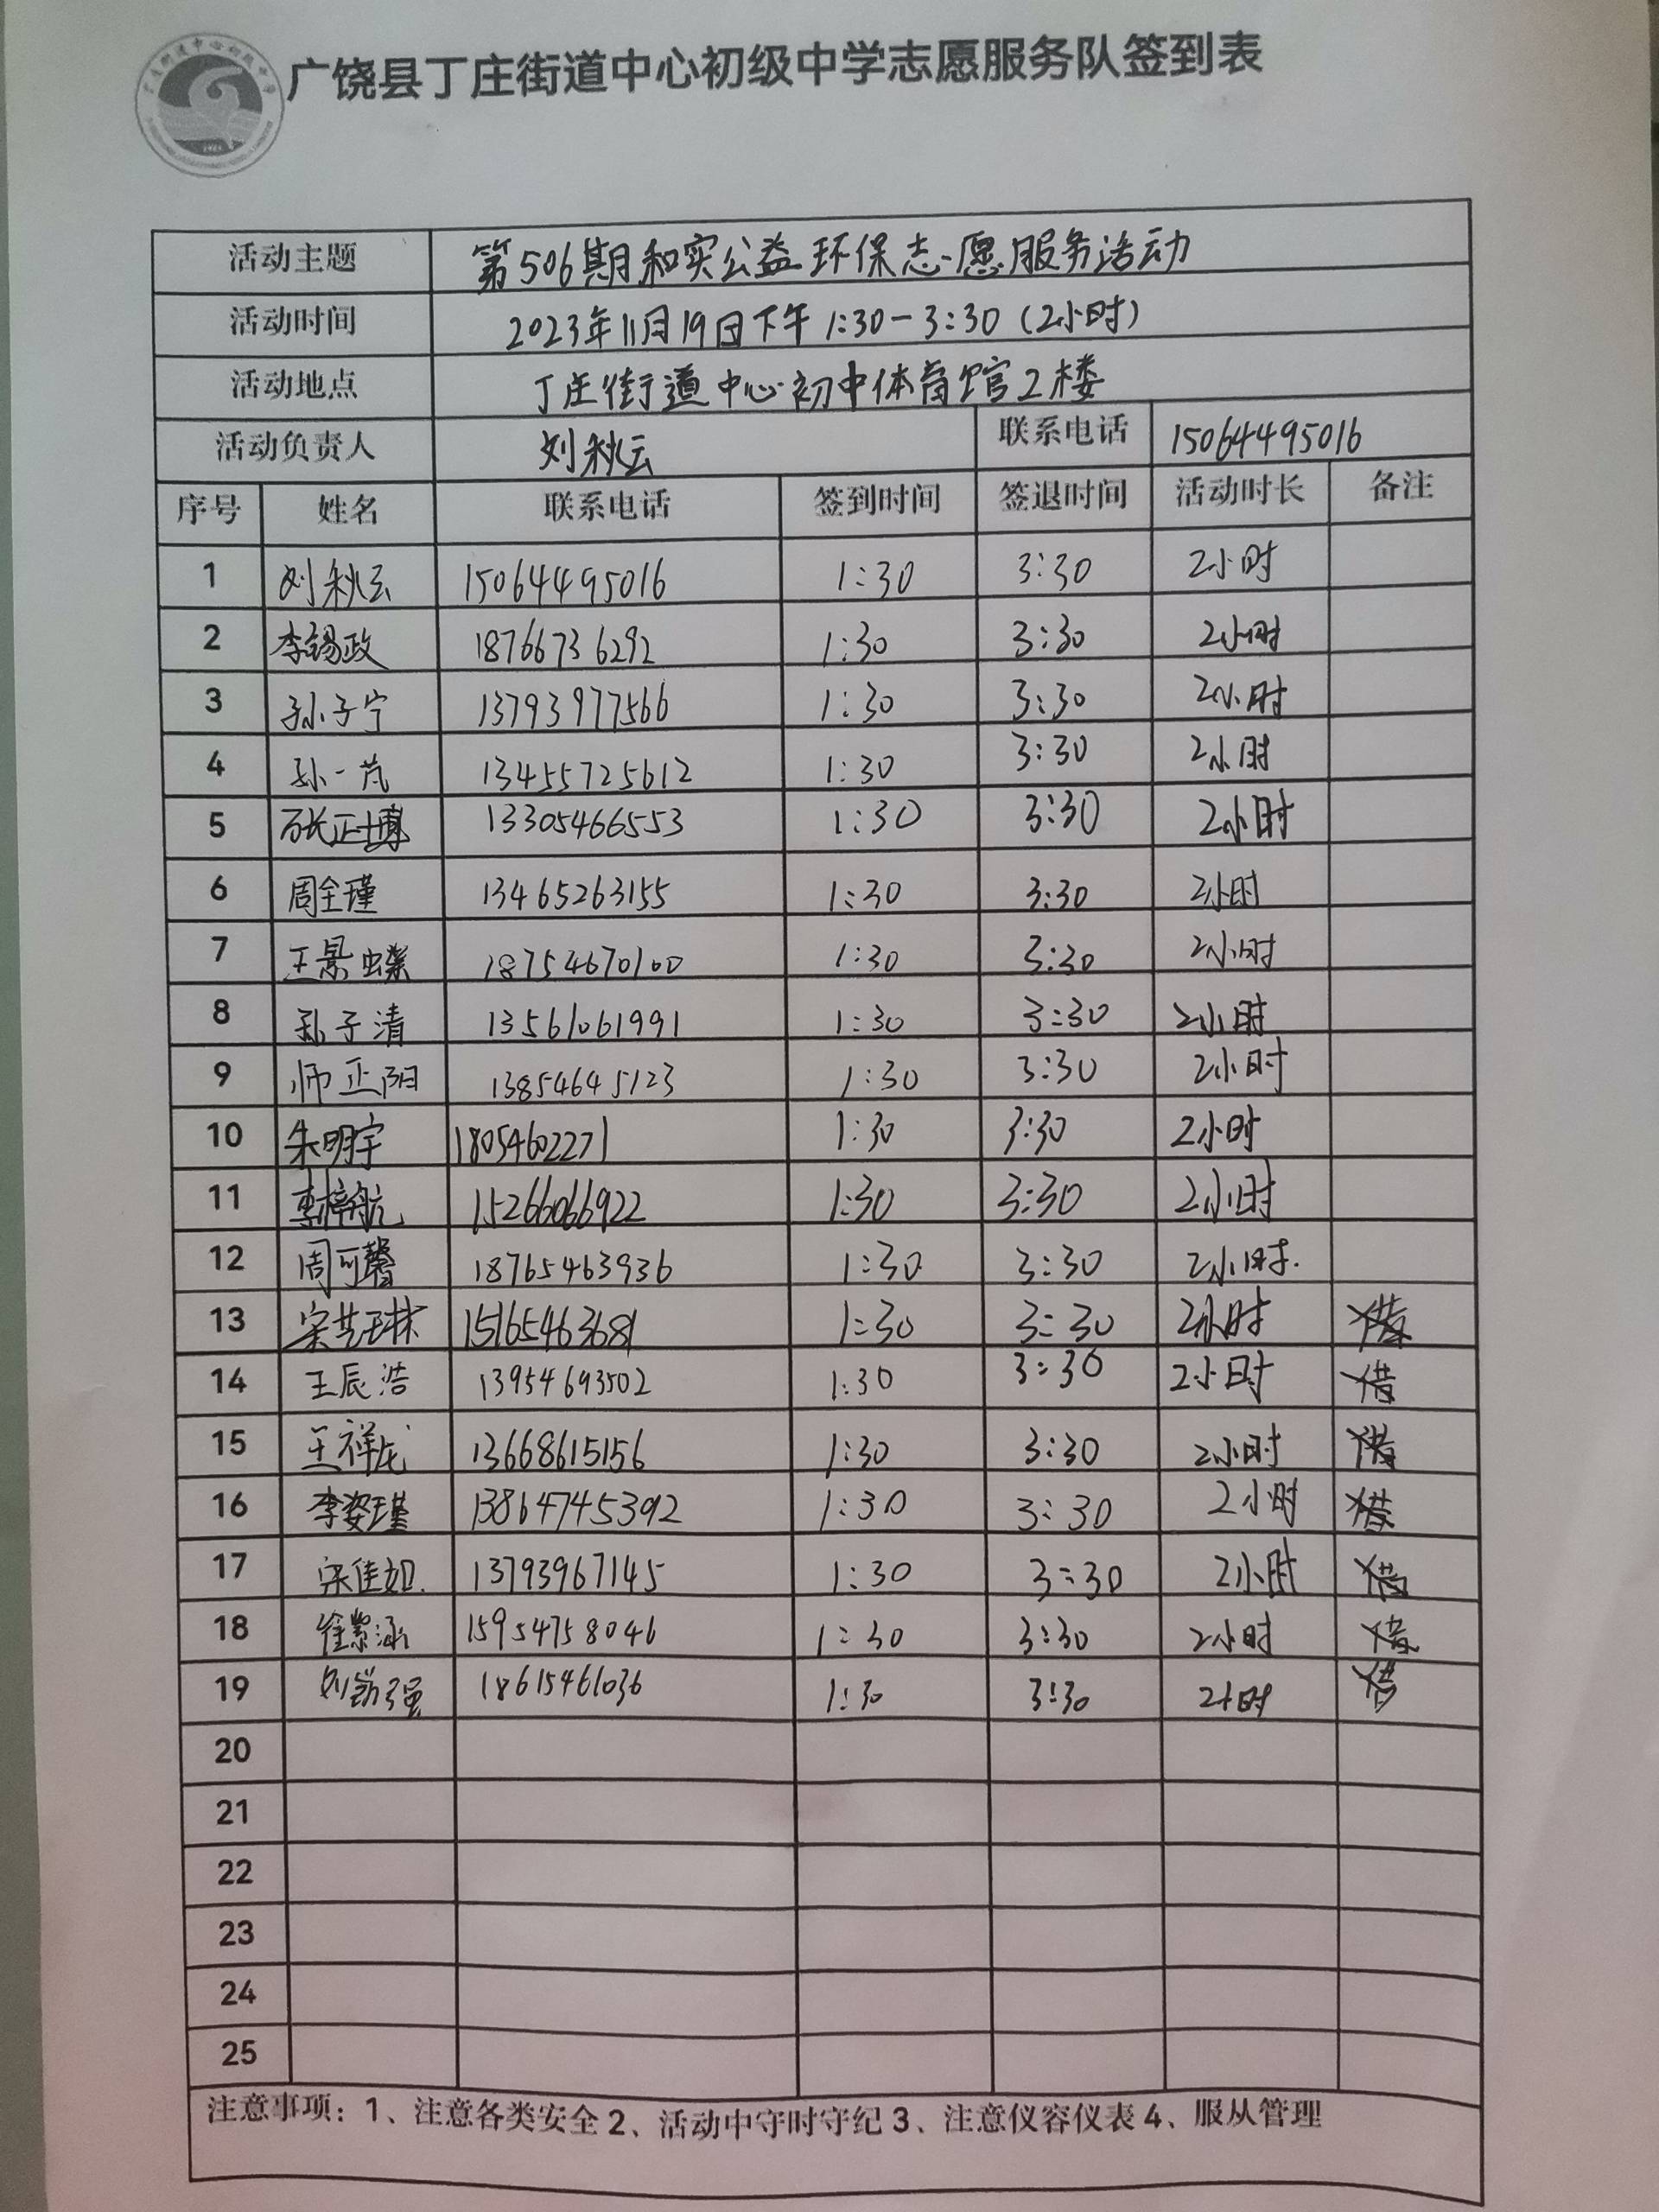 广饶县丁庄街道中心初级中学志愿服务队签到表
活动主题 第506期和实公益环保志愿服务活动
活动时间 2023年11月19日下午1:30-3:30(2小时)
活动地点 丁庄街道中心初中体育馆2楼
活动负责人 刘秋云 联系电话 15064495016
序号 姓名 联系电话 签到时间 签退时间 活动时长 备注
1 刘秋云 15064495016 1:30 3:30 2小时
2 李锡政 18766736292 1:30 3:30 2小时
3 孙子宁 13793977566 1:30 3:30 2小时
4 孙一芃 13455725612 1:30 3:30 2小时
5 张正博 13305466553 1:30 3:30 2小时
6 周全瑾 13465263155 1:30 3:30 2小时
7 王景蝶 18754670100 1:30 3:30 2小时
8 孙子清 13561061991 1:30 3:30 2小时
9 师正阳 13854645123 1:30 3:30 2小时
10 朱明宇 18054602271 1:30 3:30 2小时
11 李梓航 15266066922 1:30 3:30 2小时
12 周可馨 18765463936 1:30 3:30 2小时.
13 宋艺琳 15165463681 1:30 3:30 2小时 借
14 王辰浩 13954693502 1:30 3:30 2小时 借
15 王祥龙 13668615156 1:30 3:30 2小时 借
16 李姿瑾 13864745392 1:30 3:30 2小时 借
17 宋佳如. 13793967145 1:30 3:30 2小时 借
18 徐紫涵 15954758046 1:30 3:30 2小时 借
19 18615461036 1:30 3:30 2小时 借
20
21
22
23
24
25
注意事项：1、注意各类安全2、活动中守时守纪3、注意仪容仪表4、服从管理